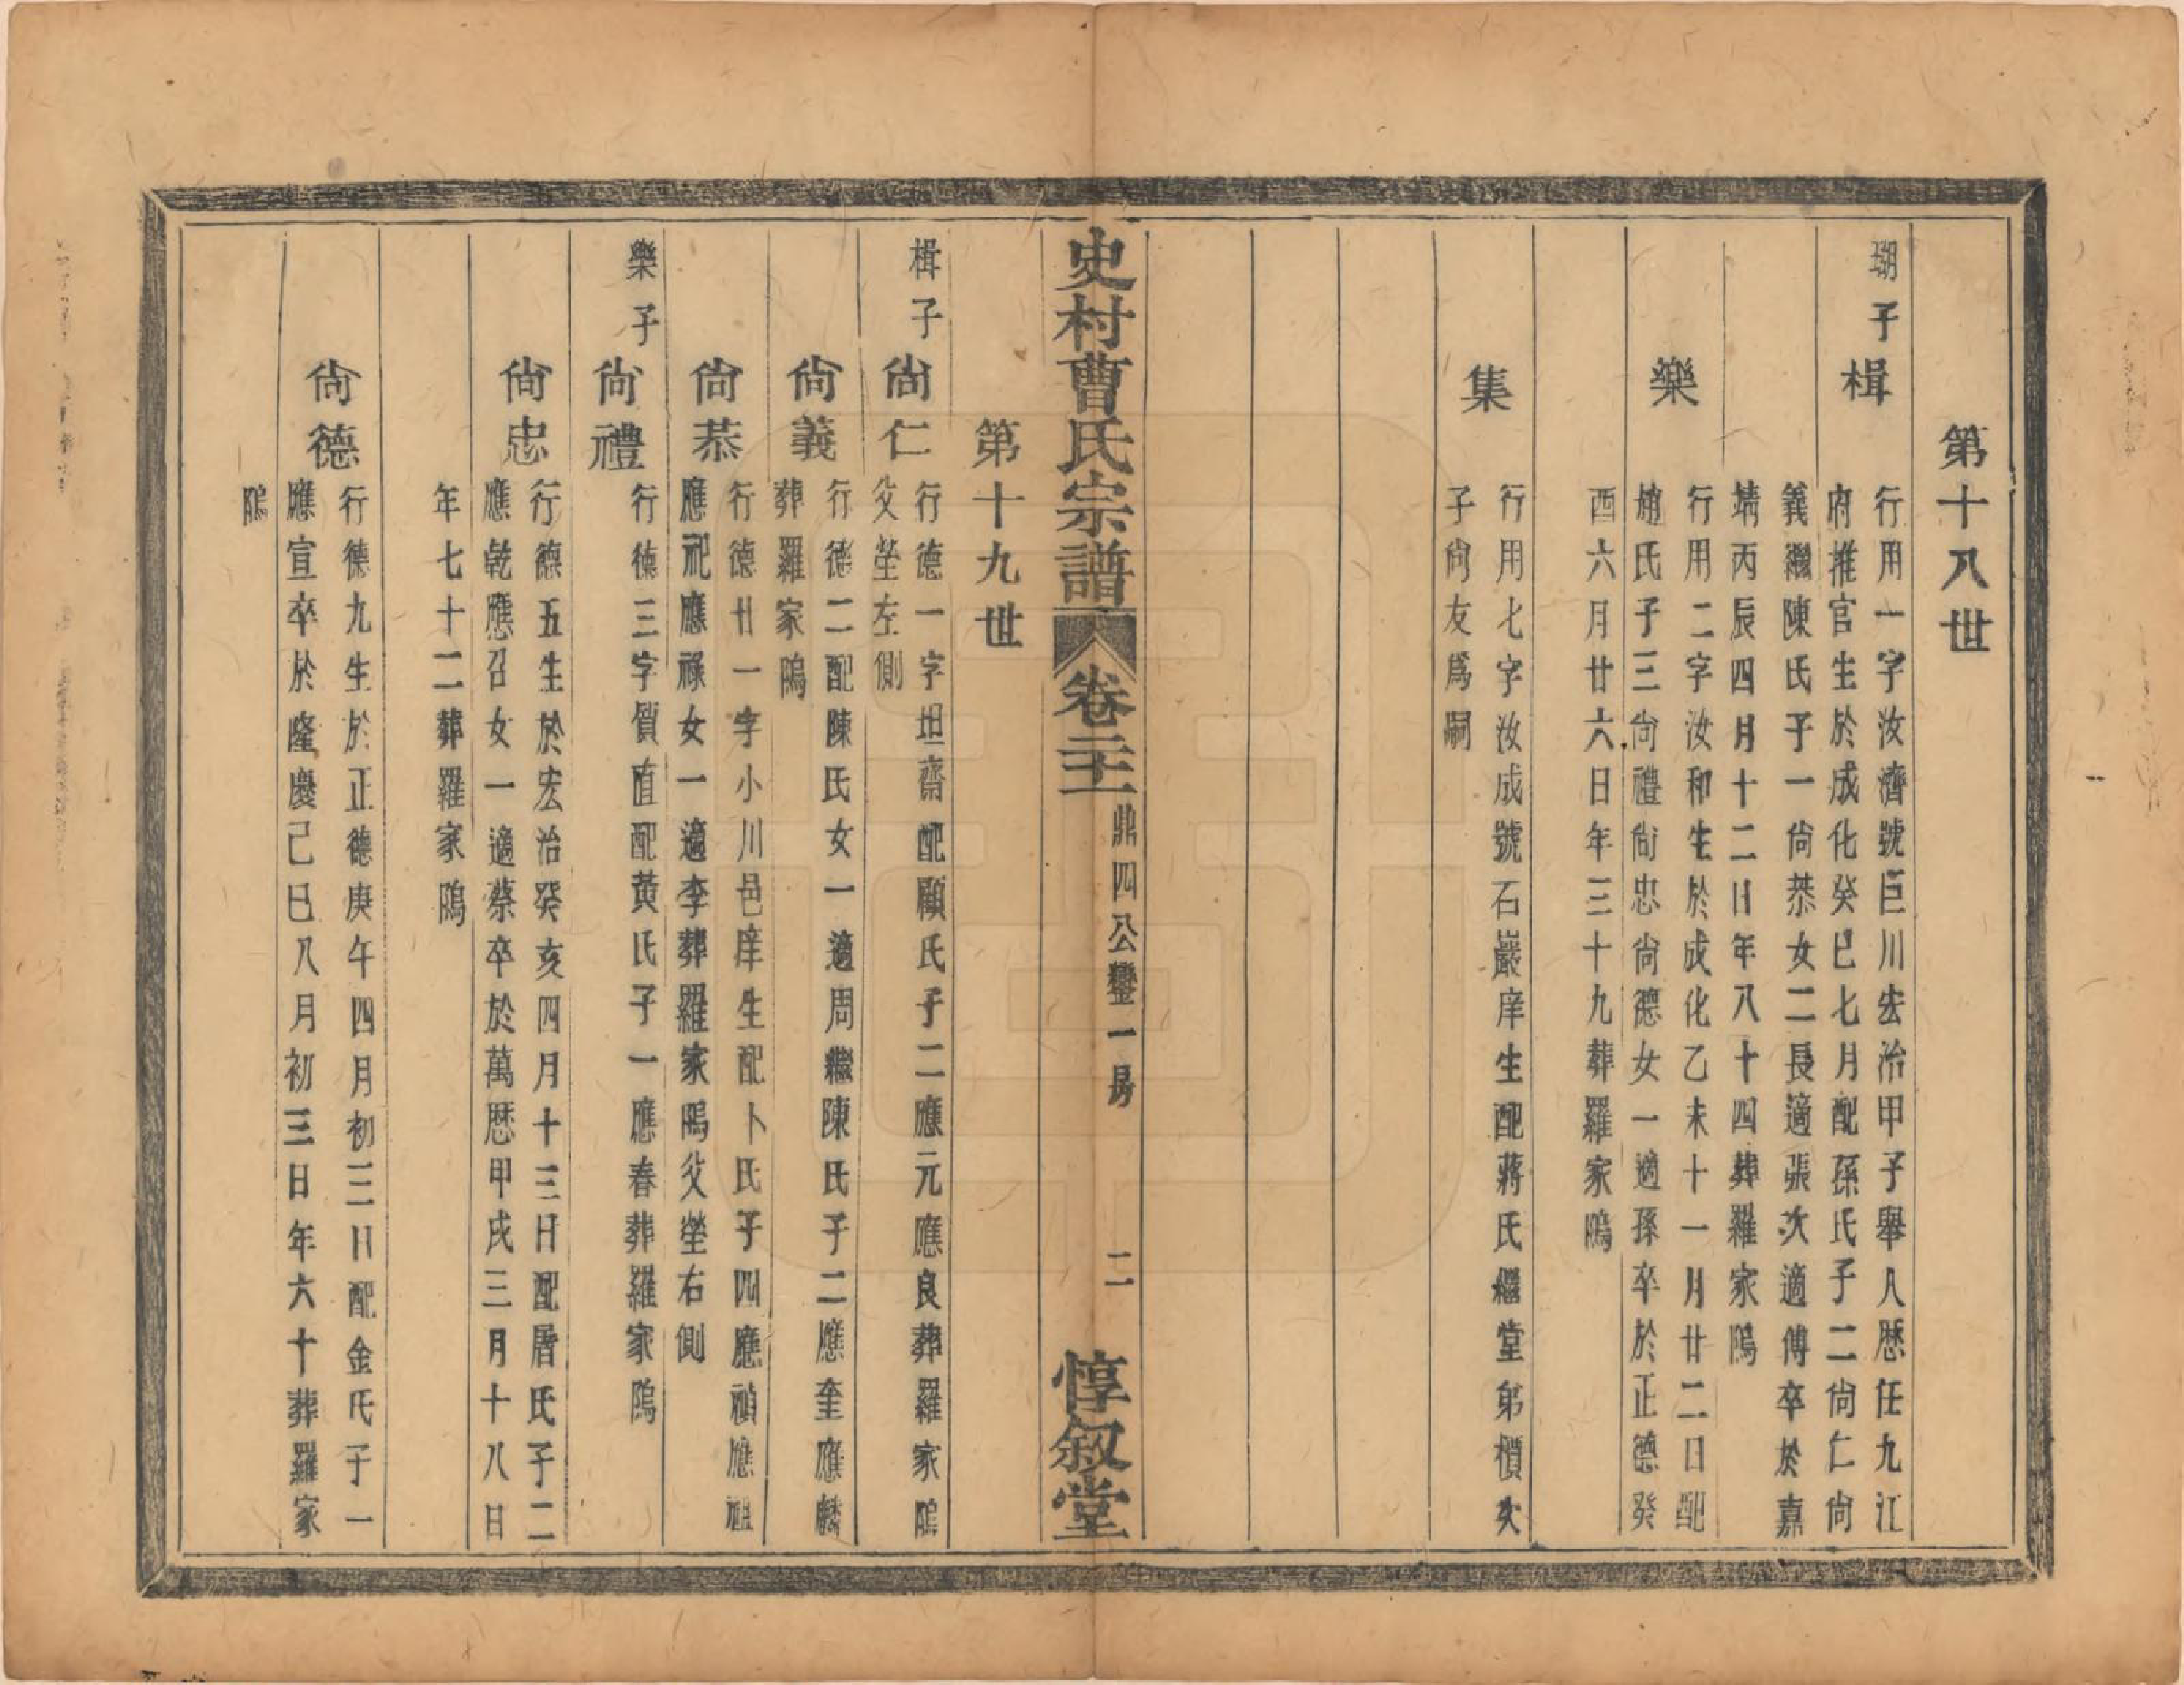 第十八世
瑚子
楫
行用一字汝濟號巨川宏治甲子舉人歷任九江
府推官生於成化癸巳七月配孫氏子二尙仁尙
義繼陳氏子一尙恭女二長適張次適傅卒於嘉
靖丙辰四月十二日年八十四葬羅家隖
樂
行用二字汝和生於成化乙未十一月廿二日配
趙氏子三尙禮尙忠尙德女一適孫卒於正德癸
酉六月廿六日年三十九葬羅家隖
集
行用七字汝成號石巖庠生配蔣氏繼堂弟楨次
子尙友爲嗣
史村曹氏宗譜
卷二十二
鼎四公鑾一房
二
惇敘堂
第十九世
楫子
尙仁
行德一字坦齋配顧氏子二應元應良葬羅家隖
父塋左側
尙義
行德二配陳氏女一適周繼陳氏子二應奎應麟
葬羅家隖
尙恭
行德廿一字小川邑庠生配卜氏子四應禎應祖
應祀應祿女一適李葬羅家隖父塋右側
樂子
尙禮
行德三字質直配黃氏子一應春葬羅家隖
尙忠
行德五生於宏治癸亥四月十三日配屠氏子二
應乾應召女一適蔡卒於萬歷甲戌三月十八日
年七十二葬羅家隖
尙德
行德九生於正德庚午四月初三日配金氏子一
應宣卒於隆慶己巳八月初三日年六十葬羅家
隖